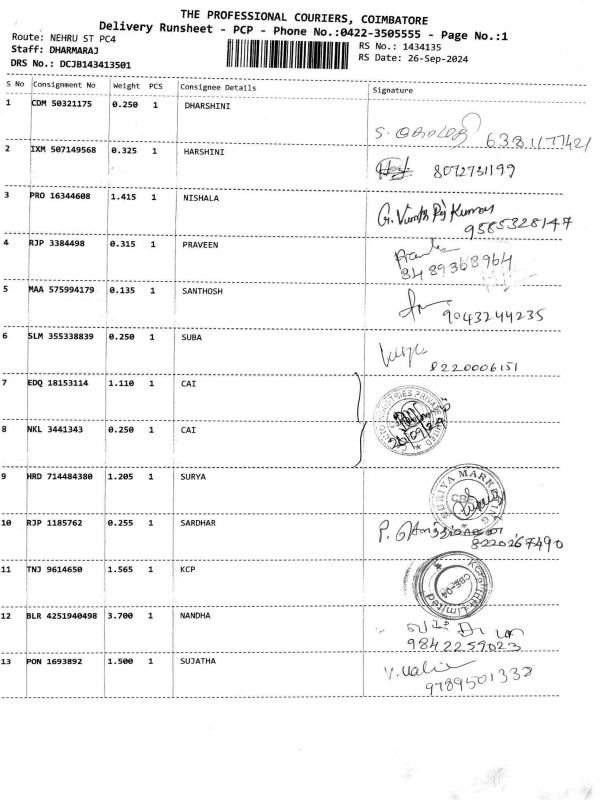 THE PROFESSIONAL COURIERS, COIMBATORE
Delivery Runsheet - PCP - Phone No.:0422-3505555 - Page No.:1
Route: NEHRU ST PC4
RS No.: 1434135
Staff: DHARMARAJ
RS Date: 26-Sep-2024
DRS No.: DCJB143413501
S No Consignment No Weight PCS Consignee Details Signature
1 CDM 50321175 0.250 1 DHARSHINI
6381177421
2 IXM 507149568 0.325 1 HARSHINI
8072731199
3 PRO 16344608 1.415 1 NISHALA
9585328147
4 RJP 3384498 0.315 1 PRAVEEN
8489368964
5 MAA 575994179 0.135 1 SANTHOSH
9043244235
6 SLM 355338839 0.250 1 SUBA
8220006151
7 EDQ 18153114 1.110 1 CAI
8 NKL 3441343 0.250 1 CAI
26/09/24
9 HRD 714484380 1.205 1 SURYA
SURIYA MARKETING
CBE
10 RJP 1185762 0.255 1 SARDHAR
8220267490
11 TNJ 9614650 1.565 1 KCP
Limited
12 BLR 4251940498 3.700 1 NANDHA
9842259023
13 PON 1693892 1.500 1 SUJATHA
9789501332